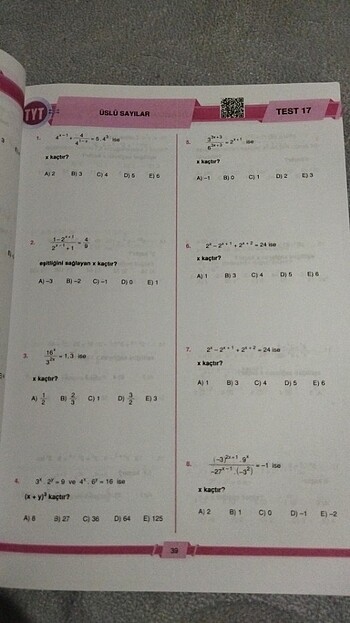 TYT
ÜSLÜ SAYILAR
TEST 17
1. ise
x kaçtır?
A) 2 B) 3 C) 4 D) 5 E) 6
2. (1−2^(x+1))/(2^(x−1)+1) = 4/9
eşitliğini sağlayan x kaçtır?
A) −3 B) −2 C) −1 D) 0 E) 1
3. 16^x/3^(2x) = 1,3 ise
x kaçtır?
A) 1/2 B) 2/3 C) 1 D) 3/2 E) 3
4. 3^x . 2^y = 9 ve 4^x . 6^y = 16 ise
(x + y)^3 kaçtır?
A) 8 B) 27 C) 36 D) 64 E) 125
5. = 2^(x+1) ise
x kaçtır?
A) −1 B) 0 C) 1 D) 2 E) 3
6. 2^x − 2^(x+1) + 2^(x+2) = 24 ise
x kaçtır?
A) 1 B) 3 C) 4 D) 5 E) 6
7. 2^x − 2^(x+1) + 2^(x+2) = 24 ise
x kaçtır?
A) 1 B) 3 C) 4 D) 5 E) 6
8. ((−3)^(2x+1) . 9^x)/(−27^(x−1) . (−3^2)) = −1 ise
x kaçtır?
A) 2 B) 1 C) 0 D) −1 E) −2
39